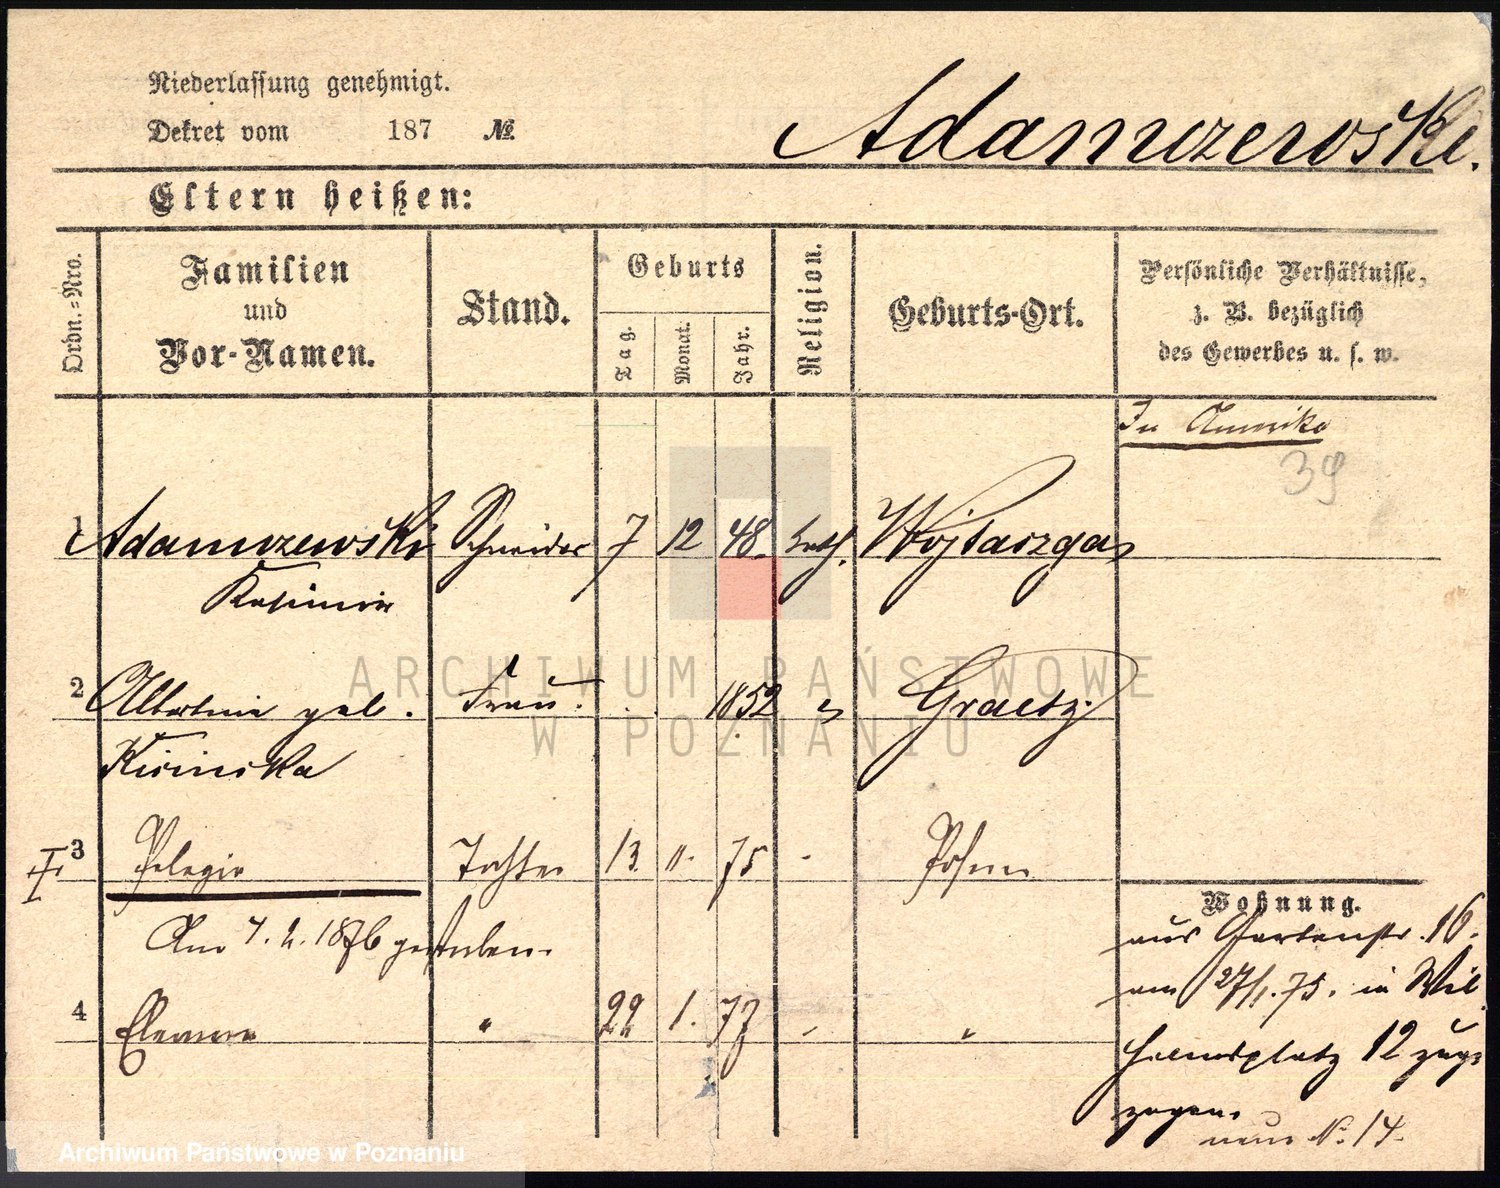 Niederlassung genehmigt.
Dekret vom 187 №
Adamczewski.
Eltern heißen:
Ordn.=Nro.
Familien
und
Vor-Namen.
Stand.
Geburts
Tag.
Monat.
Jahr.
Religion.
Geburts-Ort.
Persönliche Verhältnisse,
z. B. bezüglich
des Gewerbes u. s. w.
In Amerika
39
1 Adamczewski Schneider 7 12 48 kath.
Kasimir
2 Albertine geb. Frau. 1852 Graetz.
3 Pelagia Tochter 13 11. 75 Posen
Am 7. 2. 1876 gestorben.
4 " 22 1. 77 "
Wohnung.
aus Gartenstr. 16.
am 27/1. 75. in Wil
helmsplatz 12 zuge
zogen.
neue №. 14.
ARCHIWUM PAŃSTWOWE
W POZNANIU
Archiwum Państwowe w Poznaniu